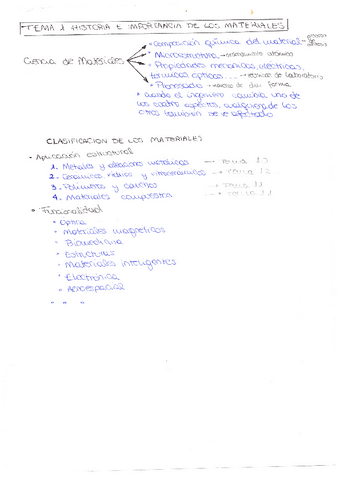 TEMA 1 HISTORIA E IMPORTANCIA DE LOS MATERIALES
Ciencia de Materiales
• Composición química del material
• Microestructura
• Propiedades mecánicas, eléctricas,
térmicas, ópticas... → técnicas de laboratorio
• Procesado → manera de dar forma
* cuando el ingeniero cambia uno de
los cuatro aspectos, cualquiera de los
otros también se ve afectado
CLASIFICACIÓN DE LOS MATERIALES
• Aplicación estructural
1. Metales y aleaciones metálicas
2. Cerámicos, vidrios y vitrocerámicos
3. Polímeros y cauchos
4. Materiales compuestos
• Funcionalidad
• Óptica
• Materiales magnéticos
• Biomedicina
• Estructuras
• Materiales inteligentes
• Electrónica
• Aeroespacial